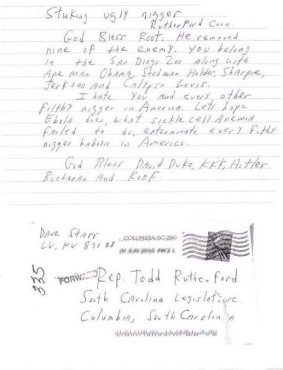 Stinking ugly nigger
RutherFord Coon.
God Bless Roof. He removed
nine of the enemy. You belong
in the San Diego Zoo along with
Ape man Obama, Stedman Holder, Sharpie,
Jerkson and Calypso Louis.
I hate you and every other
Filthy nigger in America. Lets hope
Ebola does, what sickle cell Anemia
failed to do, exterminate every filthy
nigger in America.
God Bless David Duke, KKK, Hitler
Buchanan and Roof.
Dave Starr
LV, NV 89108
COLUMBIA SC 290
335
FORWARD
Rep. Todd Rutherford
South Carolina Legislature
Columbia, South Carolina